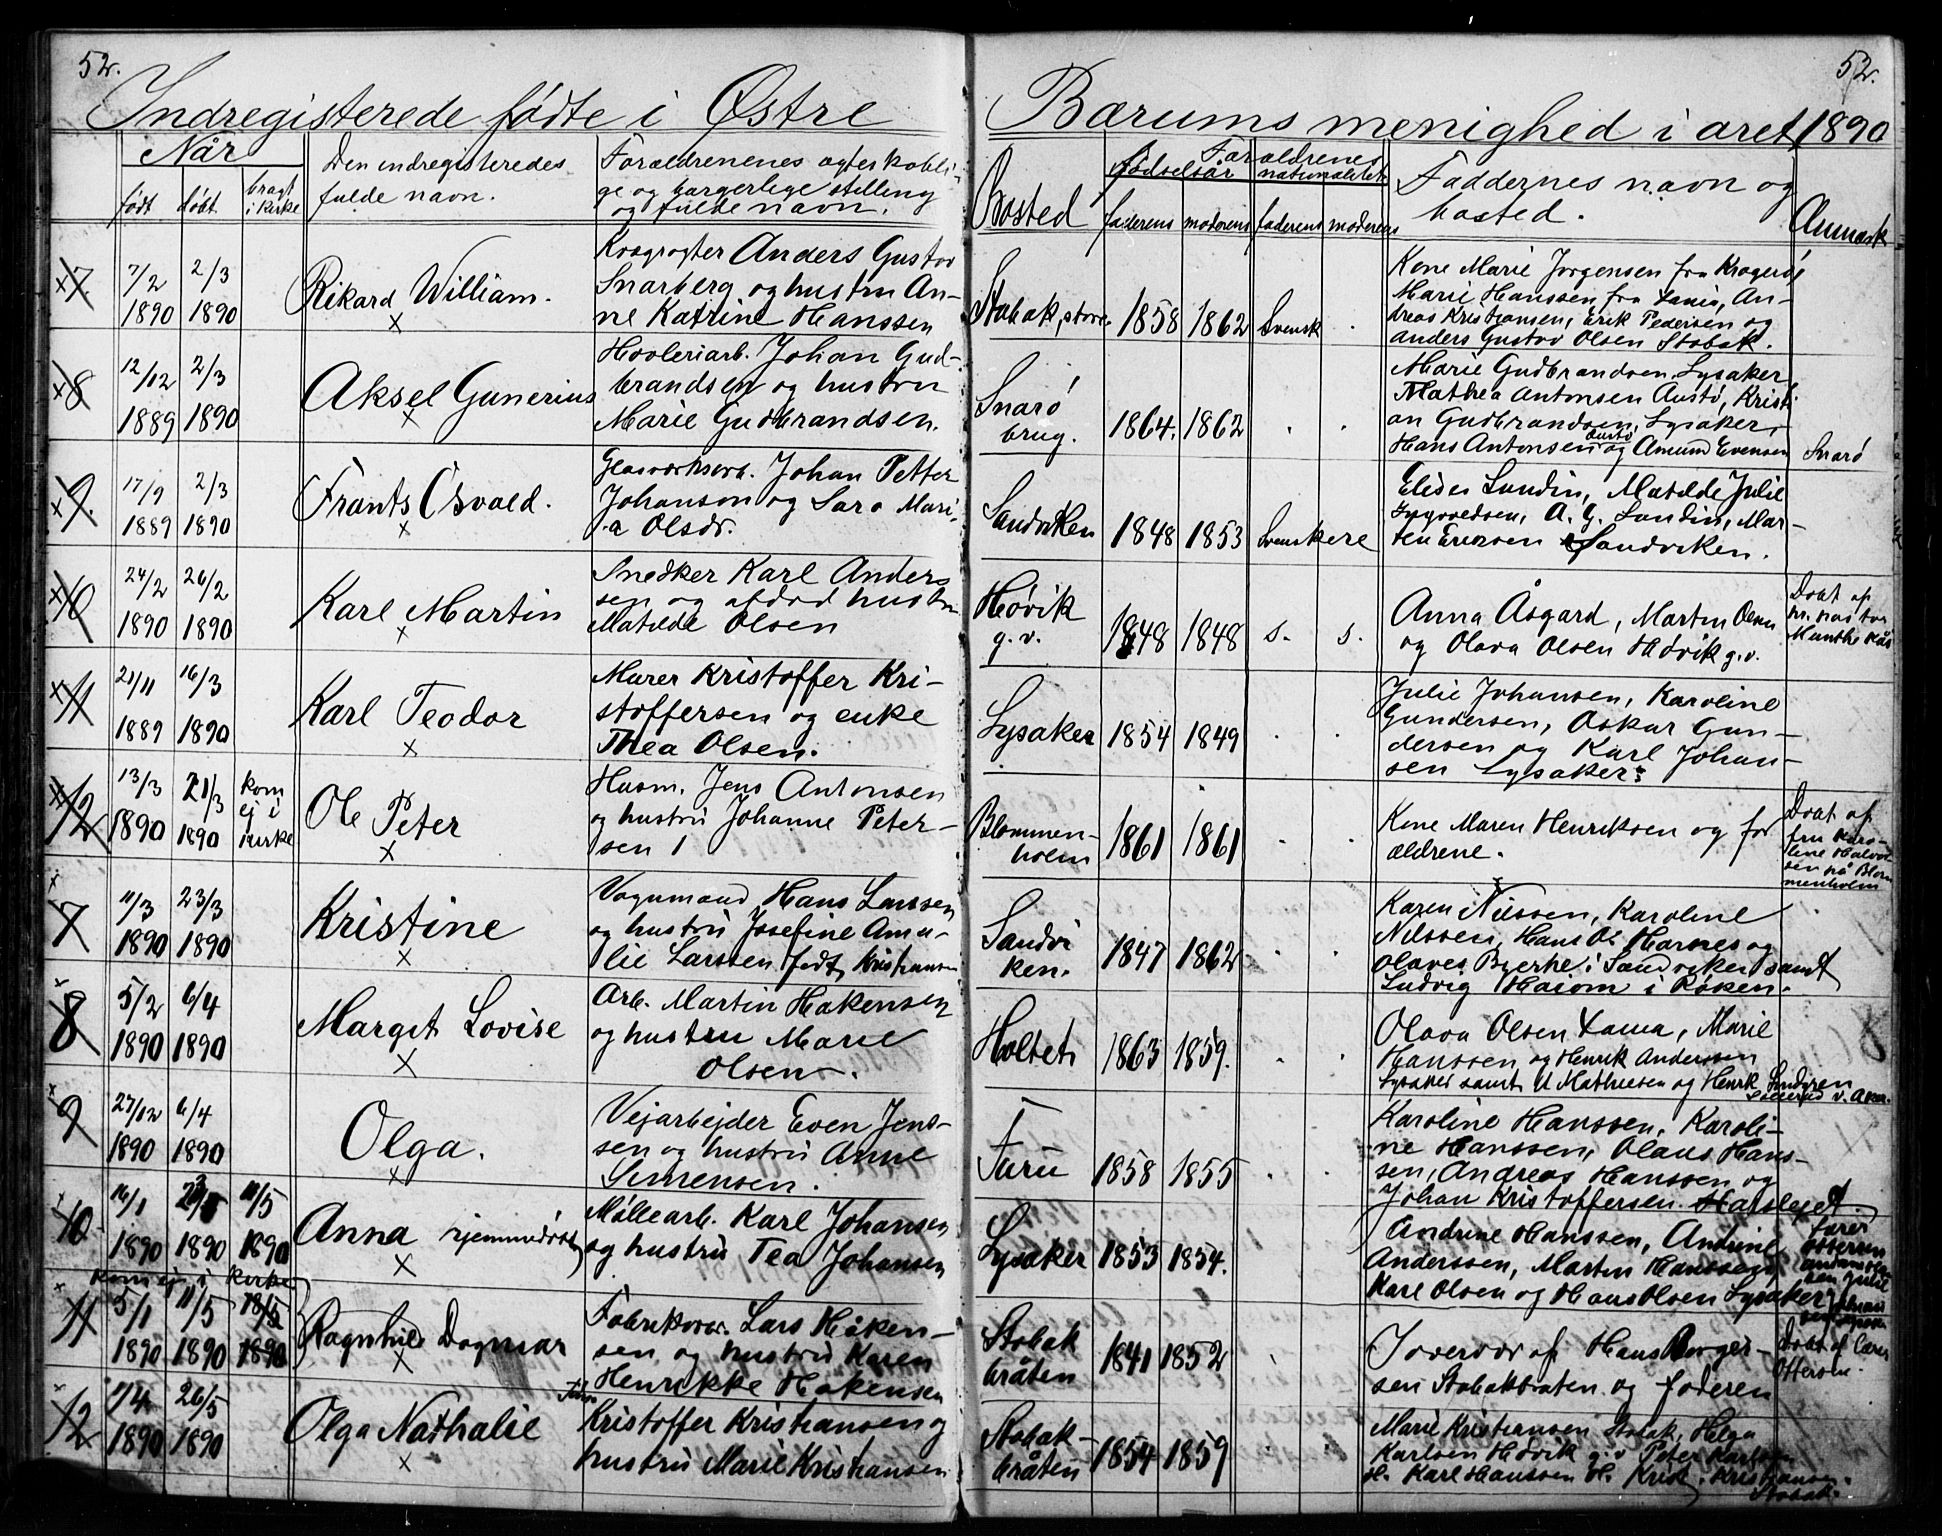 52.
52.
Indregisterede fødte i Østre Bærums menighed i året 1890
Når
født
døbt
bragt i kirke
Den indregisteredes
fulde navn.
Forældrenenes ægteskabli-
ge og borgerlige stilling
og fulde navn.
Bosted
Forældrenes
fødselsår
nationalitet
faderens
moderens
faderens
moderens
Faddernes navn og
bosted.
Anmærk
7
7/2
1890
2/3
1890
Rikard William.
Anders Gustav
Snarberg og hustru An-
ne Katrine Hanssen
Stabak, store
1858
1862
Svensk
Kone Marie Jørgensen fra Kragerø,
Marie Hanssen fra An-
dreas Kristiansen, Erik Pedersen og
Anders Gustav Olsen Stabak.
8
12/12
1889
2/3
1890
Aksel Gunerius
Høvleriarb. Johan Gud-
brandsen og hustru
Marie Gudbrandsen.
Snarø
brug.
1864.
1862
Marie Gudbrandsen, Lysaker
Mathea Antonsen Austø, Kristi
an Gudbrandsen, Lysaker,
Hans Antonsen Austø og Amund Evensen
Snarø
9.
17/9
1889
2/3
1890
Frants Osvald.
Glasværksarb. Johan Petter
Johanson og Sara Mari-
a Olsdr.
Sandviken
1848
1853
Svenskere
Elider Sundin, Matilde Julie
A. G. Sundin, Mar-
ten Ericson Sandviken.
10
24/2
1890
26/2
1890
Karl Martin
Snedker Karl Anders
sen og afdød hustru
Matilde Olsen
Høvik
g. v.
1848
1848
s.
s.
Anna Åsgard, Martin Olsen
og Olava Olsen Høvik g.v.
Døbt af
hr. pastor
Munthe Kås
11
21/11
1889
16/3
1890
Karl Teodor
Murer Kristoffer Kri-
stoffersen og enke
Thea Olsen.
Lysaker
1854
1849
Julie Johansen, Karoline
Gundersen, Oskar Gun-
dersen og Karl Johan-
sen Lysaker.
12
13/3
1890
21/3
1890
kom
ej i
kirke
Ole Peter
Husm. Jens Antonsen
og hustru Johanne Peter-
sen
Blommen-
holm
1861
1861
Kone Maren Henriksen og for
ældrene.
Døbt af
fru Karo-
line Halvor
sen på Blom
menholm
7
11/3
1890
23/3
1890
Kristine
Vognmand Hans Larssen
og hustru Josefine Ama-
lie Larssen født Kristiansen
Sandvi
ken.
1847
1862
Karen Nilssen, Karoline
Nilssen, Hans O. Harnes og
Olaves Bjerke i Sandviken samt
Ludvig Haiom i Røken.
8
5/2
1890
6/4
1890
Margit Lovise
Arb. Martin Håkensen
og hustru Marie
Olsen.
Holtet
1863
1859.
Olava Olsen Marie
Hanssen og Henrik Anderssen
Lysaker samt M Mathiesen og Henrik Lindgren
v. Aker.
9
27/12
1890
6/4
1890
Olga.
Vejarbejder Even Jens-
sen og hustru Anne
Simensen.
Furu
1858
1855
Karoline Hanssen, Karoli-
ne Hanssen, Olaus Hans-
sen, Andreas Hanssen og
Johan Kristoffersen
10
16/1
1890
1890
11/5
1890
Anna hjemmedøbt
Møllearb. Karl Johansen
og hustru Tea Johansen
Lysaker
1853
1854.
Andrine Hanssen, Andrine
Anderssen, Martin Hanssen,
Karl Olsen og Hans Olsen Lysaker
kom ej i kirke
11
5/1
1890
11/5
1890
18/5
1890
Ragnhild Dagmar
Fabriksarb. Lars Håken-
sen og hustru Karen
Henrikke Håkensen
Stabak
bråten
1841
1852
I overvær af Hans Borger-
sen Stabakbråten og faderen
Døbt af Lærer
Ottersen.
12
1890
26/5
1890
Olga Nathalie
Kristoffer Kristiansen og
hustru Marie Kristiansen
Stabak-
bråten
1854
1859
Marie Kristiansen Stabak, Helga
Karlsen Høvik g.v. Peter Karlsen
H. Karl Hanssen H. Krist. Kristiansen
Stabak.